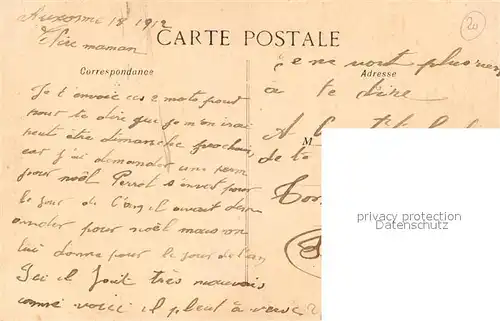 Auxonne 18 1912
Chère maman
CARTE POSTALE
Correspondance
Adresse
Je t'envoie ces 2 mots pour
pour te dire que je m'en irai
peut être dimanche prochain
car j'ai demander une perm
pour noël Perrot s'invit pour
le jour de l'an il avait dem
ander pour noël mais on
lui donne pour le jour de l'an
Ici il fait très mauvais
comme voici il pleut à verse
je ne voit plus rien
a te dire
A
M
de te
Cor
privacy protection
Datenschutz
20